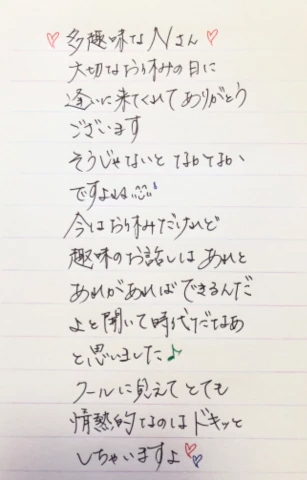 ♡多趣味なNさん♡
大切なお休みの日に
逢いに来てくれてありがとう
ございます
そうじゃないと なかなか
ですよね
今はお休みだけれど
趣味のお話しは あれと
あれがあればできるんだ
よと聞いて時代だなあ
と思いました♪
クールに見えてとても
情熱的なのはドキッと
しちゃいますよ♡♡